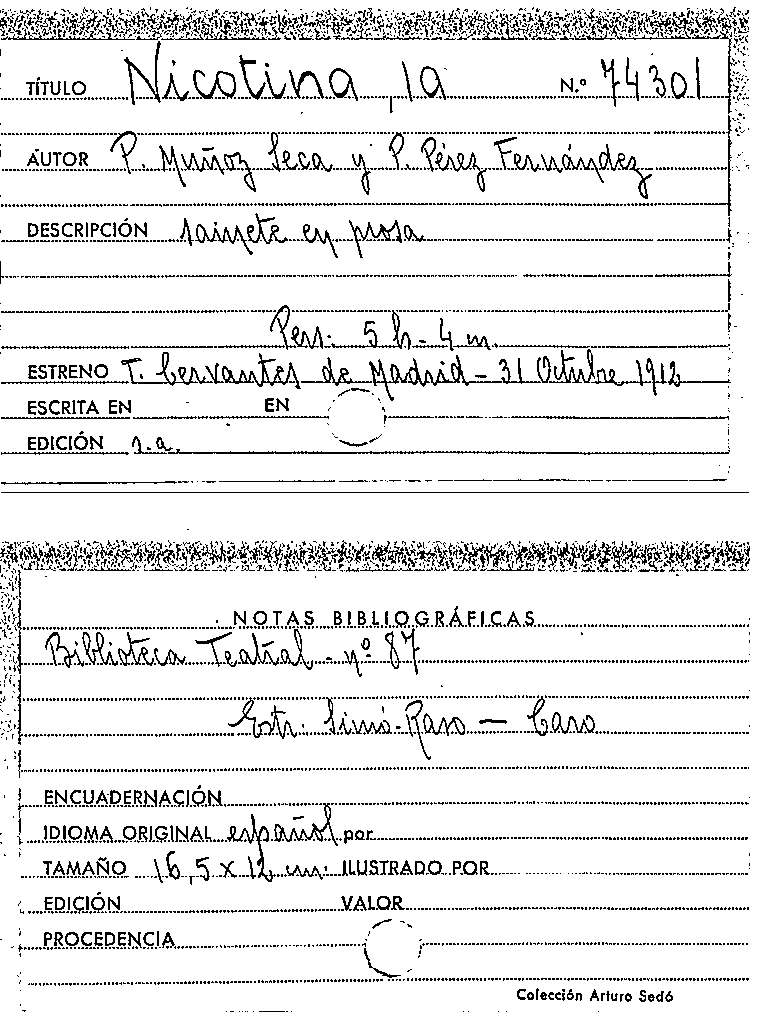 TÍTULO Nicotina, la N.º 74301
AUTOR P. Muñoz Seca y P. Pérez Fernández
DESCRIPCIÓN sainete en prosa
Pers: 5 h - 4 m.
ESTRENO T. Cervantes de Madrid - 31 Octubre 1912
ESCRITA EN EN
EDICIÓN s.a.
NOTAS BIBLIOGRÁFICAS
Biblioteca Teatral - nº 87
Estr. Simó-Raso - Caro
ENCUADERNACIÓN
IDIOMA ORIGINAL español por
TAMAÑO 16,5 x 12 cm. ILUSTRADO POR
EDICIÓN VALOR
PROCEDENCIA
Colección Arturo Sedó